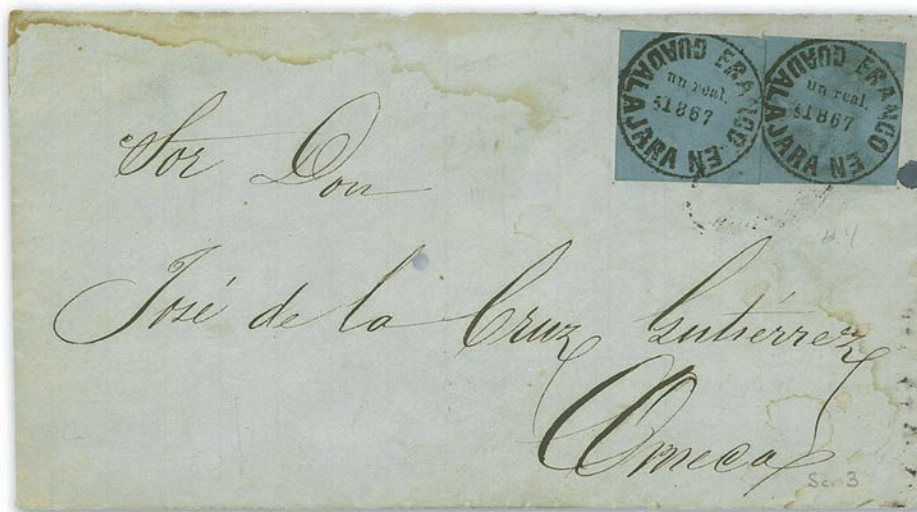 FRANCO EN GUADALAJARA
un real.
1867
FRANCO EN GUADALAJARA
un real.
1867
Sor Don
José de la Cruz Gutiérrez
Ameca
Sc. 3